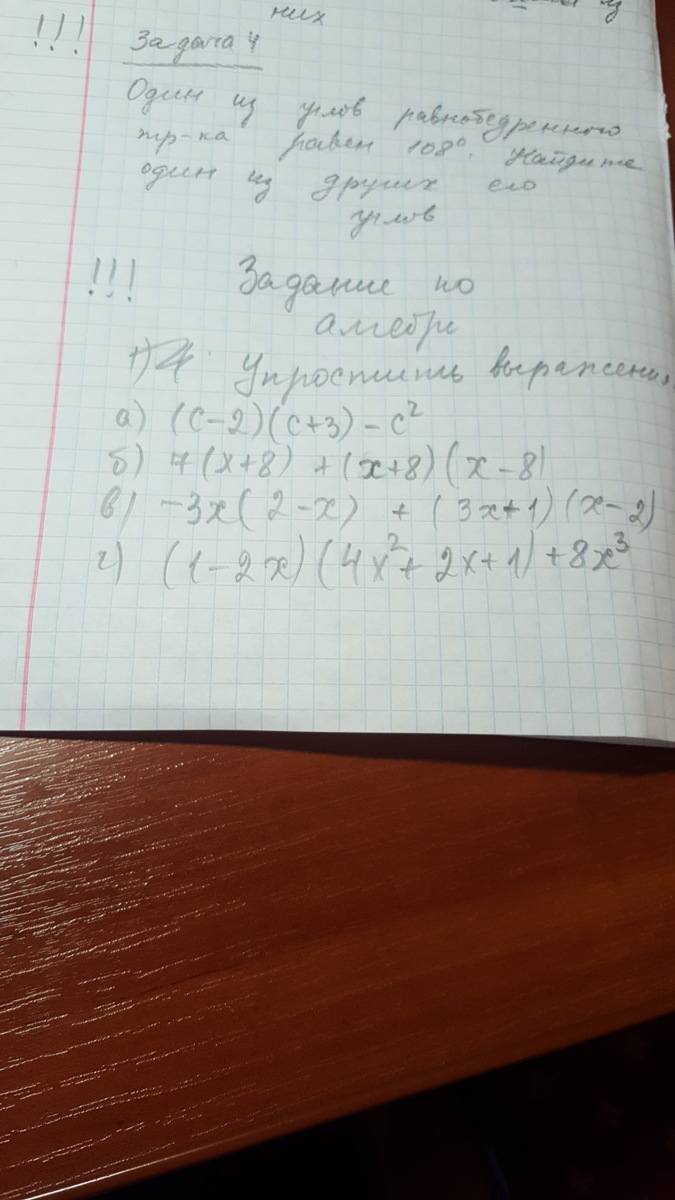 них
!!! Задача 4
Один из углов равнобедренного
тр-ка равен 108°. Найдите
один из других его
углов
!!! Задание по
алгебре
1) Упростить выражения.
а) (c-2)(c+3) - c²
б) 7(x+8) + (x+8)(x-8)
в) -3x(2-x) + (3x+1)(x-2)
г) (1-2x)(4x²+2x+1)+8x³